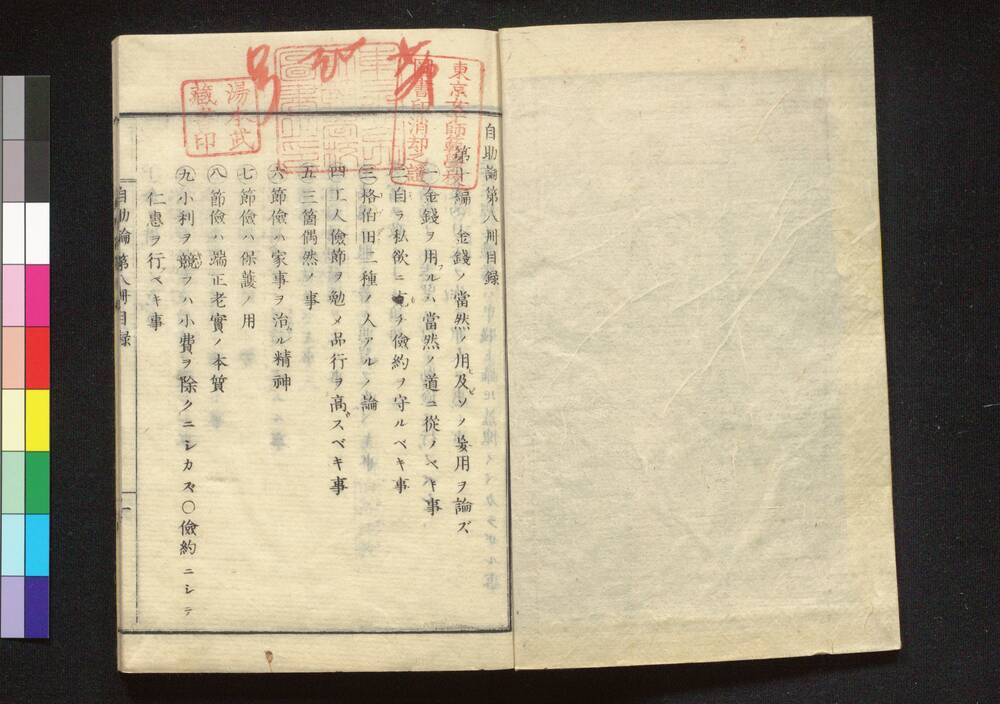 自助論第八册目録
第十編 金錢ノ當然ノ用及ビソノ妄用ヲ論ズ
㊀金錢ヲ用フルハ當然ノ道ニ從フベキ事
㊁自ラ私欲ニ克チ儉約ヲ守ルベキ事
㊂格伯田二種ノ人アルノ論
㊃工人儉節ヲ勉メ品行ヲ高スベキ事
㊄三箇偶然ノ事
㊅節儉ハ家事ヲ治ル精神
㊆節儉ハ保護ノ用
㊇節儉ハ端正老實ノ本質
㊈小利ヲ競フハ小費ヲ除クニシカズ〇儉約ニシテ
仁惠ヲ行ベキ事
自助論第八册目録
一
東京女子師範學校
圖書印消却之證
湯本武
藏書印
号